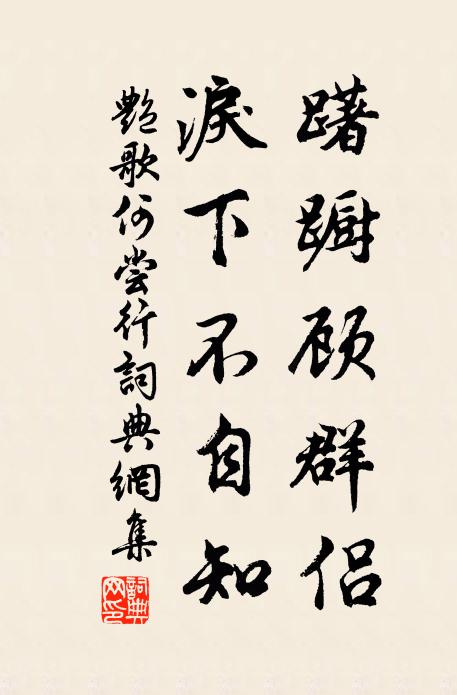 躇蹰顾群侣
淚下不自知
艷歌何尝行詞典網集
詞典网印